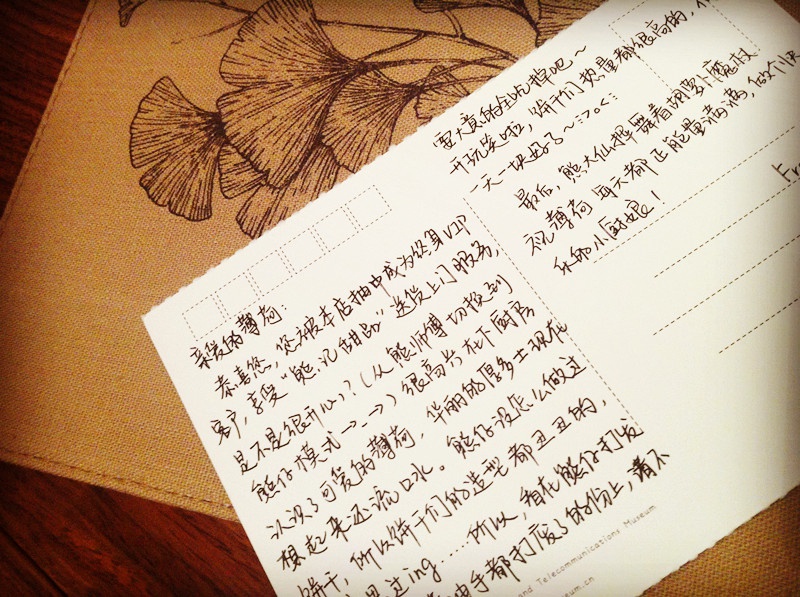 亲爱的薄荷：
恭喜您，您被本店抽中成为终身VIP
客户，享受“熊记甜品”送货上门服务，
是不是很开心？（从熊师傅切换到
熊仔模式→_→）很高兴在下厨房
认识了可爱的薄荷，华丽的厚多士现在
想起来还流口水。熊仔没怎么做过
饼干，所以饼干们的造型都丑丑的，
过ing……所以，看在熊仔打发
手都打废了的份上，请不
要大意的全吃掉吧~
开玩笑啦，饼干们热量都很高的，
一天一块好了~
最后，熊大仙挥舞着胡萝卜魔杖
祝薄荷每天都正能量满满，做个快
乐的小厨娘！
Fr
and Telecommunications Museum
seum.cn